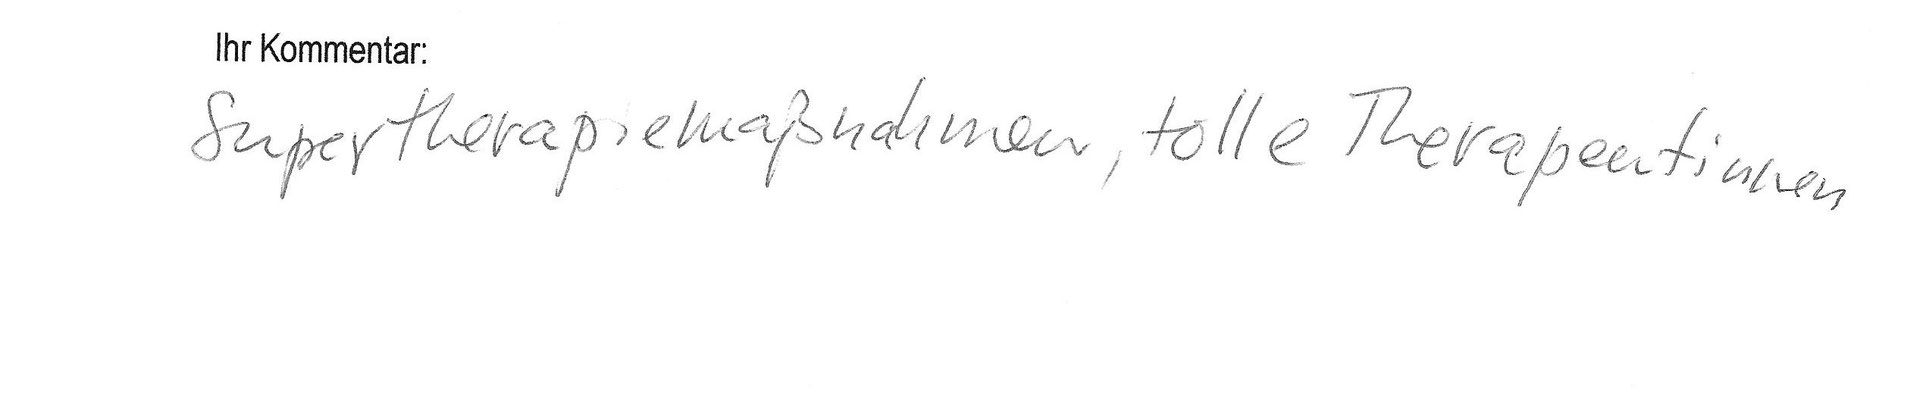 Ihr Kommentar:
Supertherapiemaßnahmen, tolle Therapeutinnen